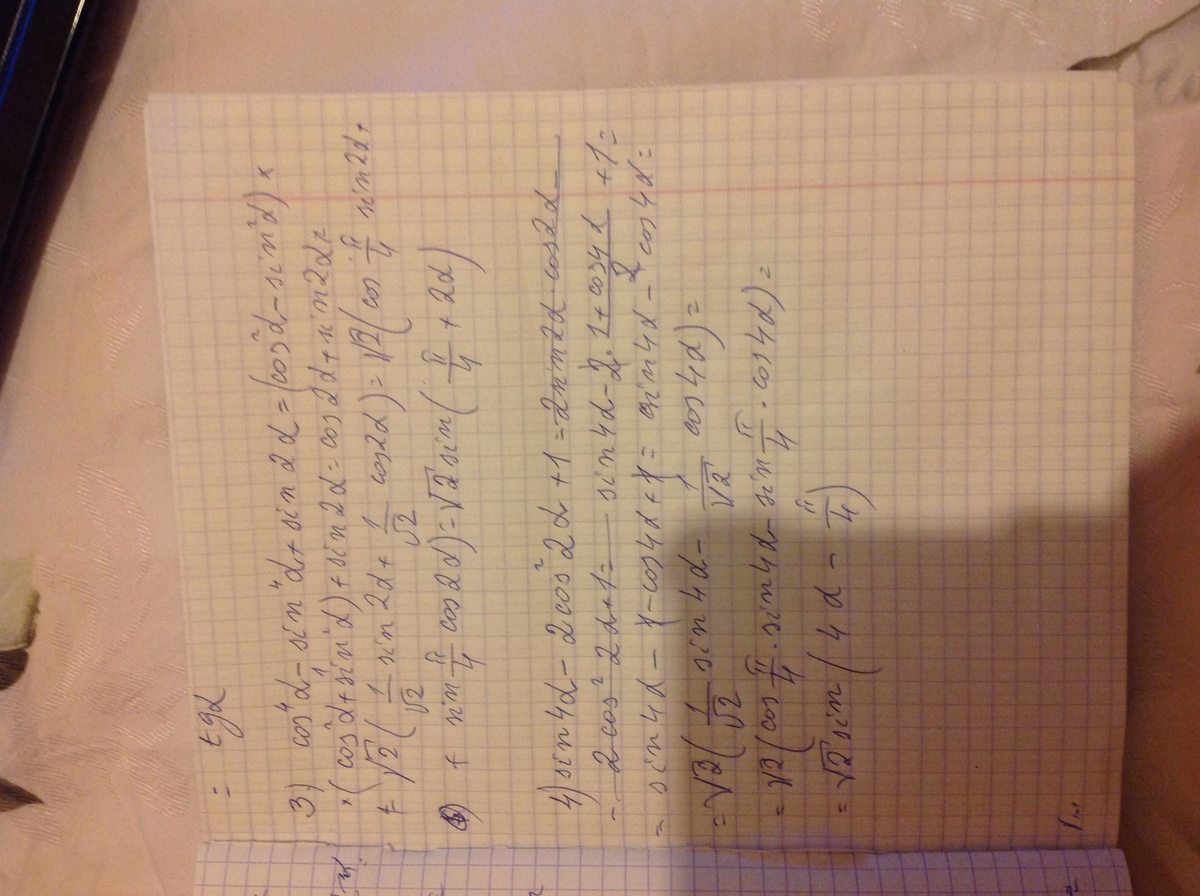 = tgα
3) cos⁴α - sin⁴α + sin2α = (cos²α - sin²α) ×
×(cos²α + sin²α) + sin2α = cos2α + sin2α =
= √2 (1/√2 sin2α + 1/√2 cos2α) = √2 (cos π/4 sin2α +
+ sin π/4 cos2α) = √2 sin (π/4 + 2α)
4) sin4α - 2cos²2α + 1 = 2sin2α cos2α -
- 2cos²2α + 1 = sin4α - 2 · (1 + cos4α)/2 + 1 =
= sin4α - 1 - cos4α + 1 = sin4α - cos4α =
= √2 (1/√2 sin4α - 1/√2 cos4α) =
= √2 (cos π/4 · sin4α - sin π/4 · cos4α) =
= √2 sin (4α - π/4)